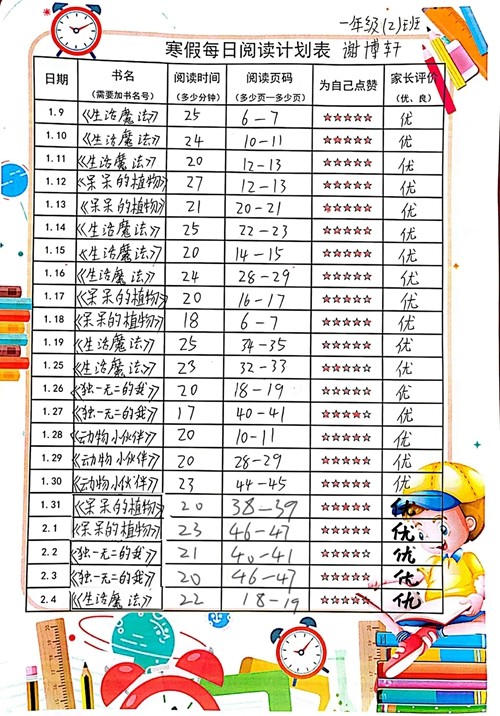 一年级(2)班
寒假每日阅读计划表 谢博轩
日期 书名 阅读时间 阅读页码 为自己点赞 家长评价
(需要加书名号) (多少分钟) (多少页—多少页) (优、良)
1.9 《生活魔法》 25 6-7 ☆☆☆☆☆ 优
1.10 《生活魔法》 24 10-11 ☆☆☆☆☆ 优
1.11 《生活魔法》 20 12-13 ☆☆☆☆☆ 优
1.12 《呆呆的植物》 27 12-13 ☆☆☆☆☆ 优
1.13 《呆呆的植物》 21 20-21 ☆☆☆☆☆ 优
1.14 《生活魔法》 25 22-23 ☆☆☆☆☆ 优
1.15 《生活魔法》 20 14-15 ☆☆☆☆☆ 优
1.16 《生活魔法》 24 28-29 ☆☆☆☆☆ 优
1.17 《呆呆的植物》 20 16-17 ☆☆☆☆☆ 优
1.18 《呆呆的植物》 18 6-7 ☆☆☆☆☆ 优
1.19 《生活魔法》 25 34-35 ☆☆☆☆☆ 优
1.25 《生活魔法》 23 32-33 ☆☆☆☆☆ 优
1.26 《独一无二的我》 20 18-19 ☆☆☆☆☆ 优
1.27 《独一无二的我》 17 40-41 ☆☆☆☆☆ 优
1.28 《动物小伙伴》 20 10-11 ☆☆☆☆☆ 优
1.29 《动物小伙伴》 20 28-29 ☆☆☆☆☆ 优
1.30 《动物小伙伴》 23 44-45 ☆☆☆☆☆ 优
1.31 《呆呆的植物》 20 38-39 ☆☆☆☆☆ 优
2.1 《呆呆的植物》 23 46-47 ☆☆☆☆☆ 优
2.2 《独一无二的我》 21 40-41 ☆☆☆☆☆ 优
2.3 《独一无二的我》 20 46-47 ☆☆☆☆☆ 优
2.4 《生活魔法》 22 18-19 ☆☆☆☆☆ 优